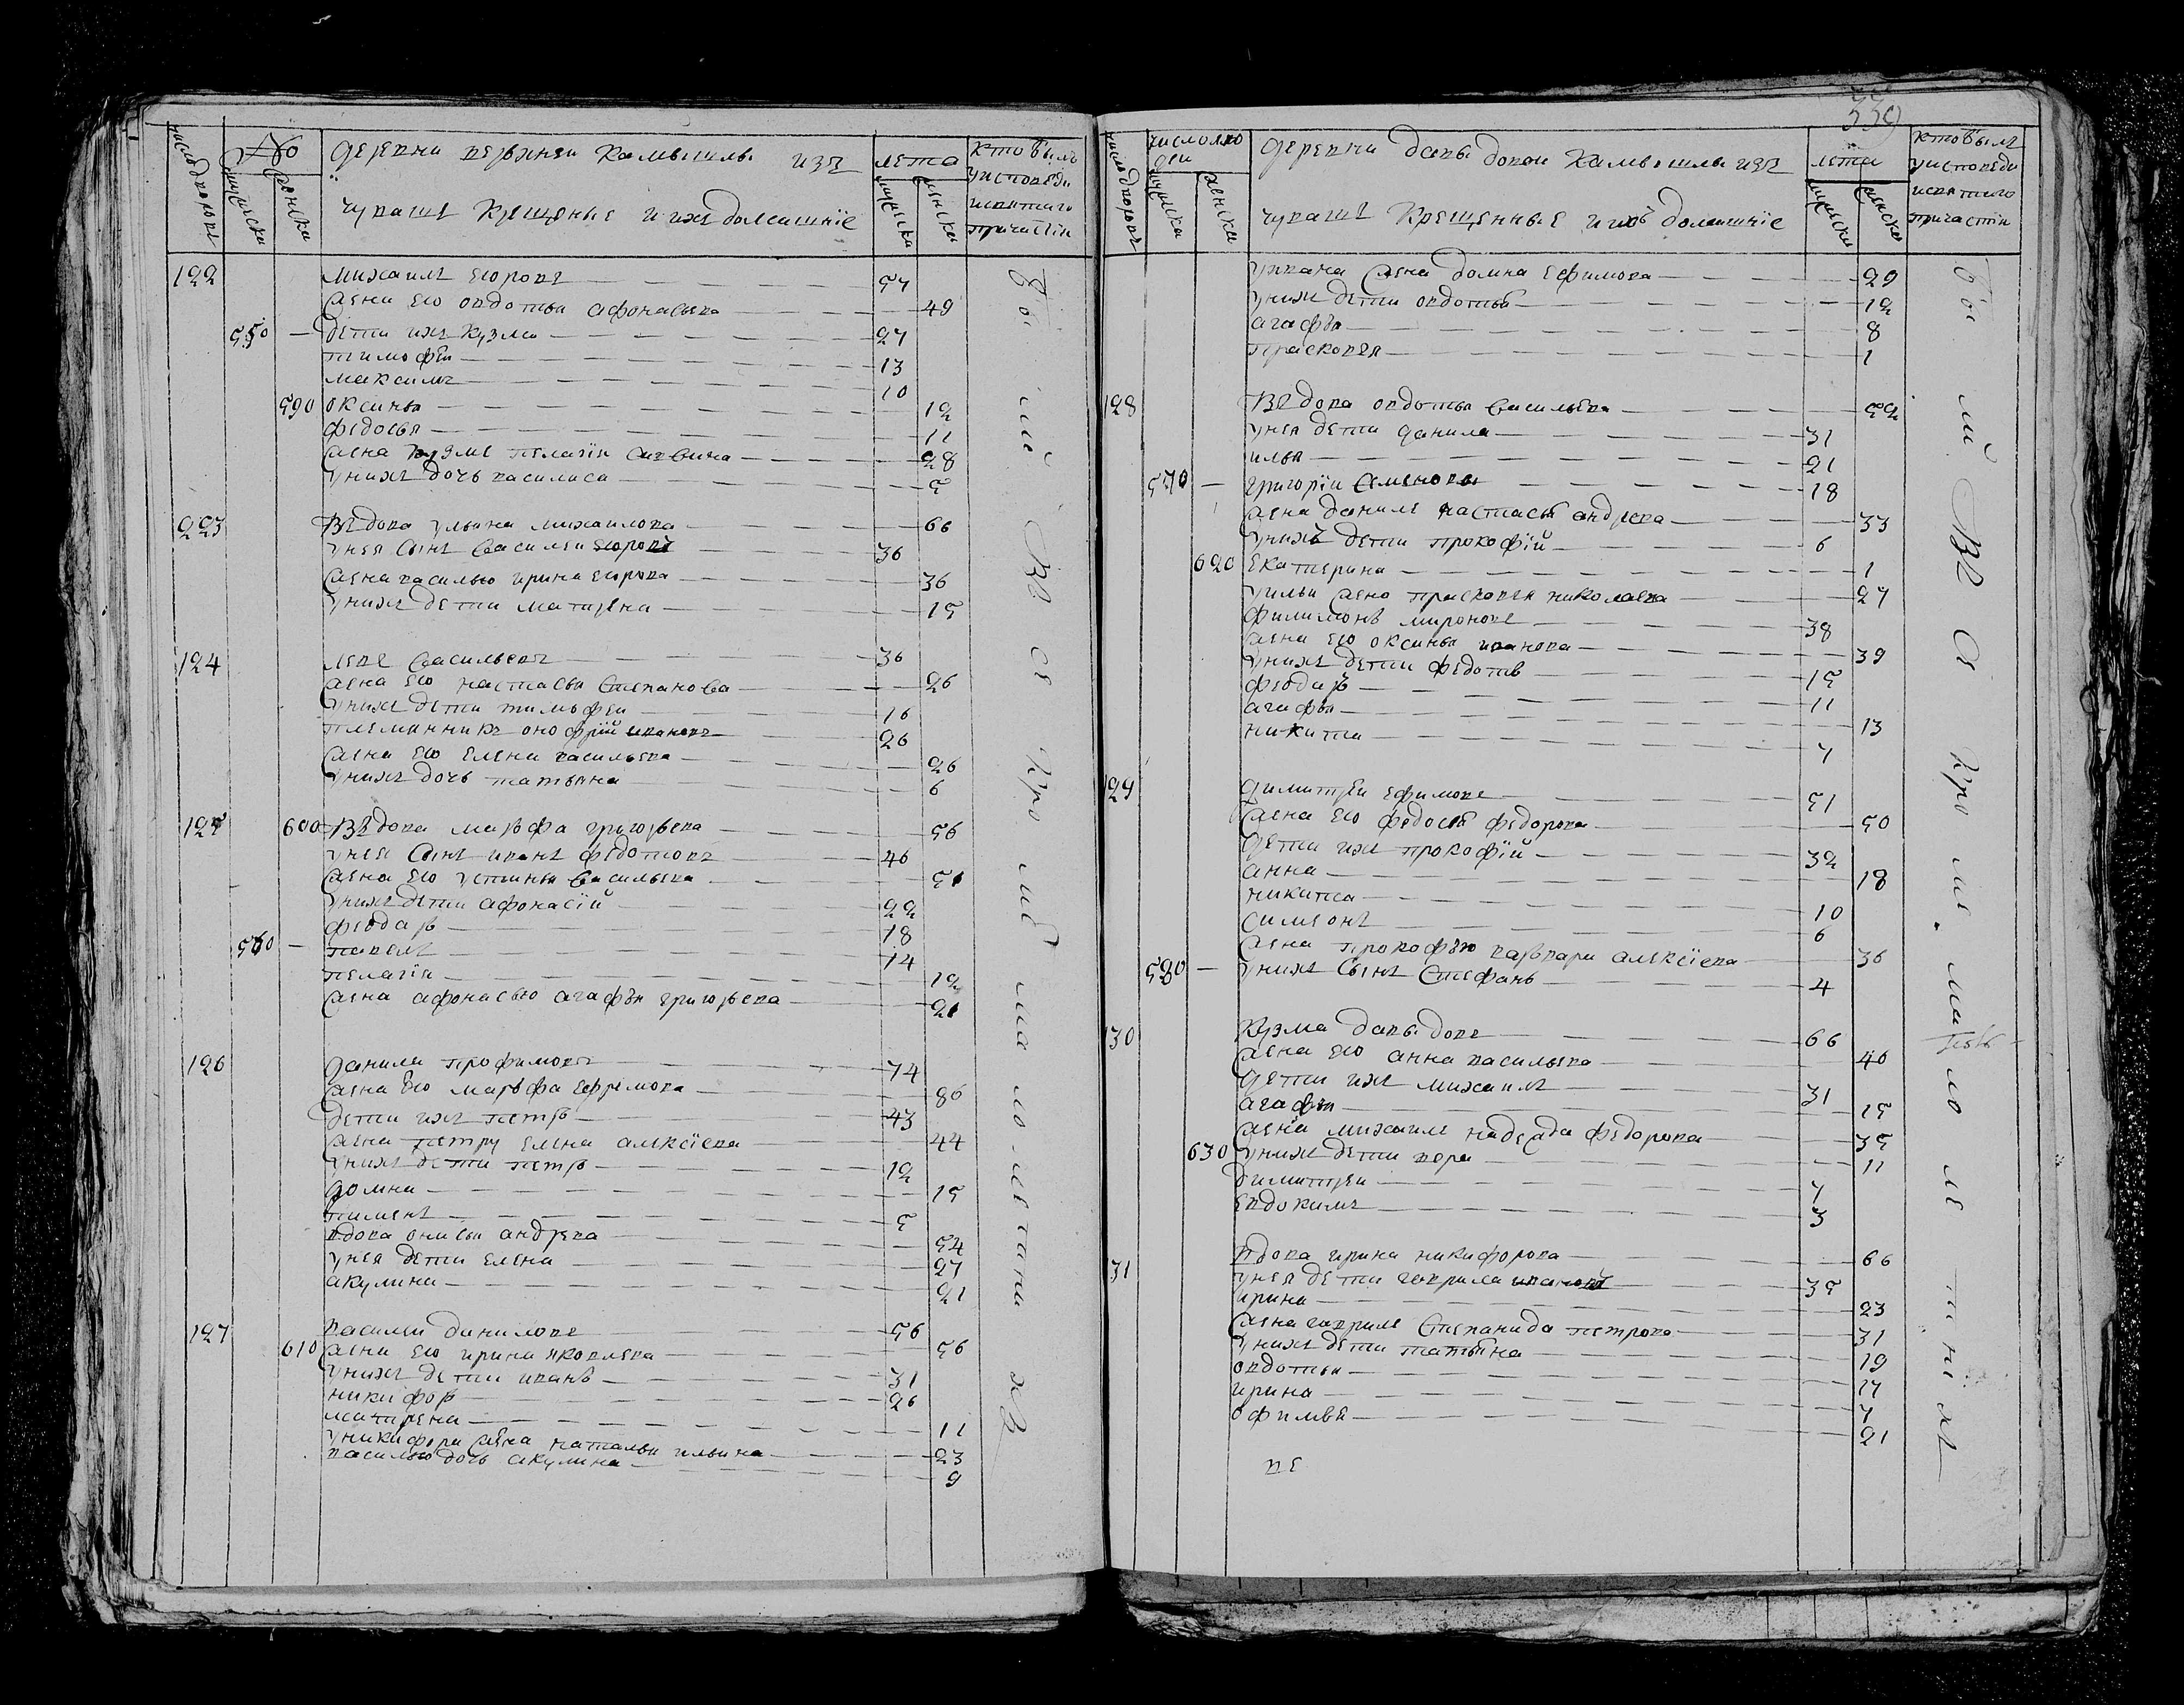 число дворовъ
№
мужеска
женска
деревни первыней Камышлы изъ
чувашъ крещеные и ихъ домашнiе
лета
мужеска
женска
кто былъ
у исповеди
и святаго
причастiя
122 михаилъ егоровъ 57
жена его овдотья афонасьева 49
550 дети ихъ кузма 27
тимофеи 13
максимъ 10
590 оксинья 12
федосья 11
жена кузме пелагiя 28
у нихъ дочь василиса 5
223 въдова ульяна михаилова 66
у нея сынъ василеи егоровъ 36
жена василью ирина егорова 36
у нихъ дети матрена 15
124 левъ васильевъ 36
жена его настасья степанова 26
у нихъ дети тимофеи 16
племянникъ онофрiй ивановъ 26
жена его елена васильева 26
у нихъ дочь татьяна 6
125 600 въдова марфа григорьева 56
у нея сынъ иванъ федотовъ 46
жена его устинья васильева 51
у нихъ дети афонасiй 22
феодаръ 18
560 павелъ 14
пелагiя 12
жена афонасью агафья григорьева 21
126 данила трофимовъ 74
жена его марфа ефремова 86
дети ихъ петръ 43
жена петру елена алексiева 44
у нихъ дети петръ 12
домна 15
пименъ 5
вдова онисья андрева 54
у нея дети елена 27
акулина 21
127 василеи даниловъ 56
610 жена его ирина яковлева 56
у нихъ дети иванъ 31
никифоръ 26
матрена 11
у никифора жена наталья ильина 23
василью дочь акулина 9
339
число дворовъ
число людеи
мужеска
женска
деревни давыдовои Камышлы изъ
чувашъ крещенные и ихъ домашнiе
лета
мужеска
женска
кто былъ
у исповеди
и святаго
причастiи
у ивана жена домна ефимова 29
у нихъ дети овдотья 12
агафья 8
прасковея 1
128 въдова овдотья васильева 52
у нея дети данила 31
илья 21
570 григорiи семеновы 18
жена даниле настасья андрева 33
у нихъ дети прокофiй 6
620 екатерина 1
у ильи жена прасковея николаева 27
филимонъ мироновъ 38
жена его оксинья иванова 39
у нихъ дети федотъ 15
феодаръ 11
агафья 13
никита 7
129 димитреи ефимовъ 51
жена его федосья федорова 50
дети ихъ прокофiй 32
анна 18
никита 10
симеонъ 6
жена прокофью варвара алексiева 36
580 у нихъ сынъ стефанъ 4
130 кузма давыдовъ 66
жена его анна васильева 40
дети ихъ михаилъ 31
агафья 15
жена михаиле надежда федорова 35
630 у нихъ дети вера 11
димитреи 7
евдокимъ 3
131 вдова ирина никифорова 66
у нея дети гаврила ивановъ 35
ирина 23
жена гавриле степанида петрова 31
у нихъ дети татьяна 19
овдотья 17
ирина 7
офимья 21
ве